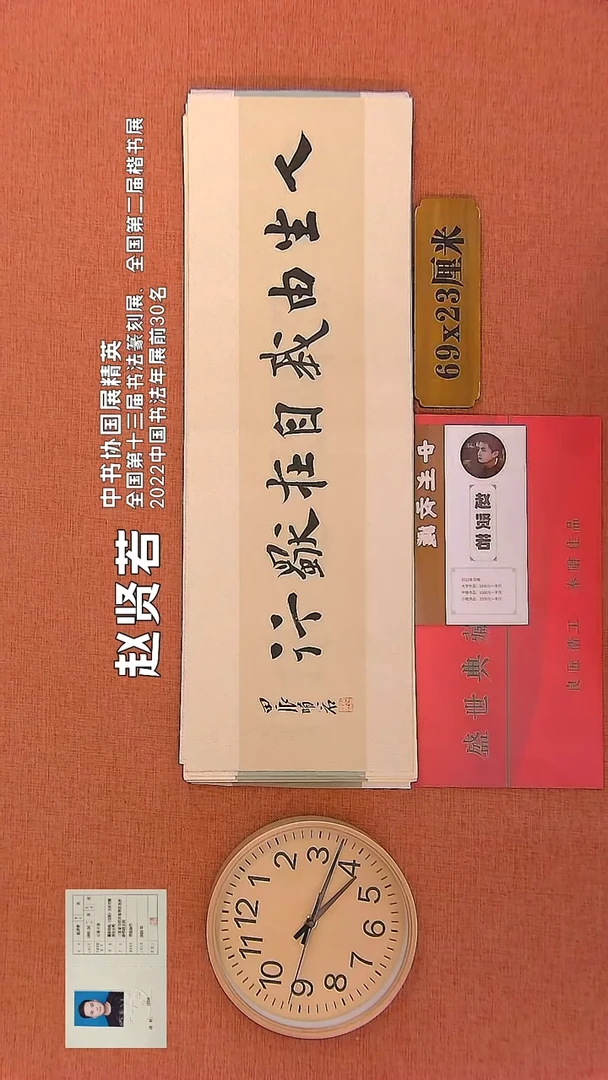 赵贤若
中书协国展精英
全国第十三届书法篆刻展、全国第二届楷书展
2022中国书法年展前30名
人生由我自在獨行
甲辰賢若
69x23厘米
赵贤若
盛世典藏
12
1
2
3
4
5
6
7
8
9
10
11